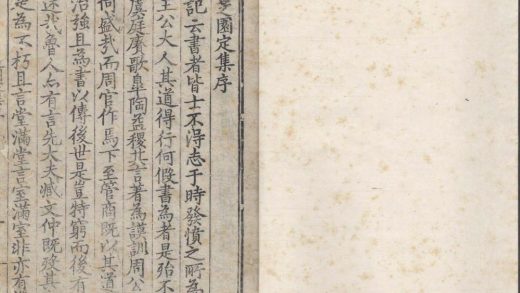 園定集序
記云書者皆士不得志于時發憤之所為
王公大人其道得行何假書為者是殆不
虞廷賡歌臯陶益稷其言著為謨訓周公
何盛哉而周官作焉下至管商既以其道
治強且為書以傳後世是豈特窮而後有
述哉魯人亦有言先大夫臧文仲既歿其
是為不朽且言堂滿堂言室滿室非亦有